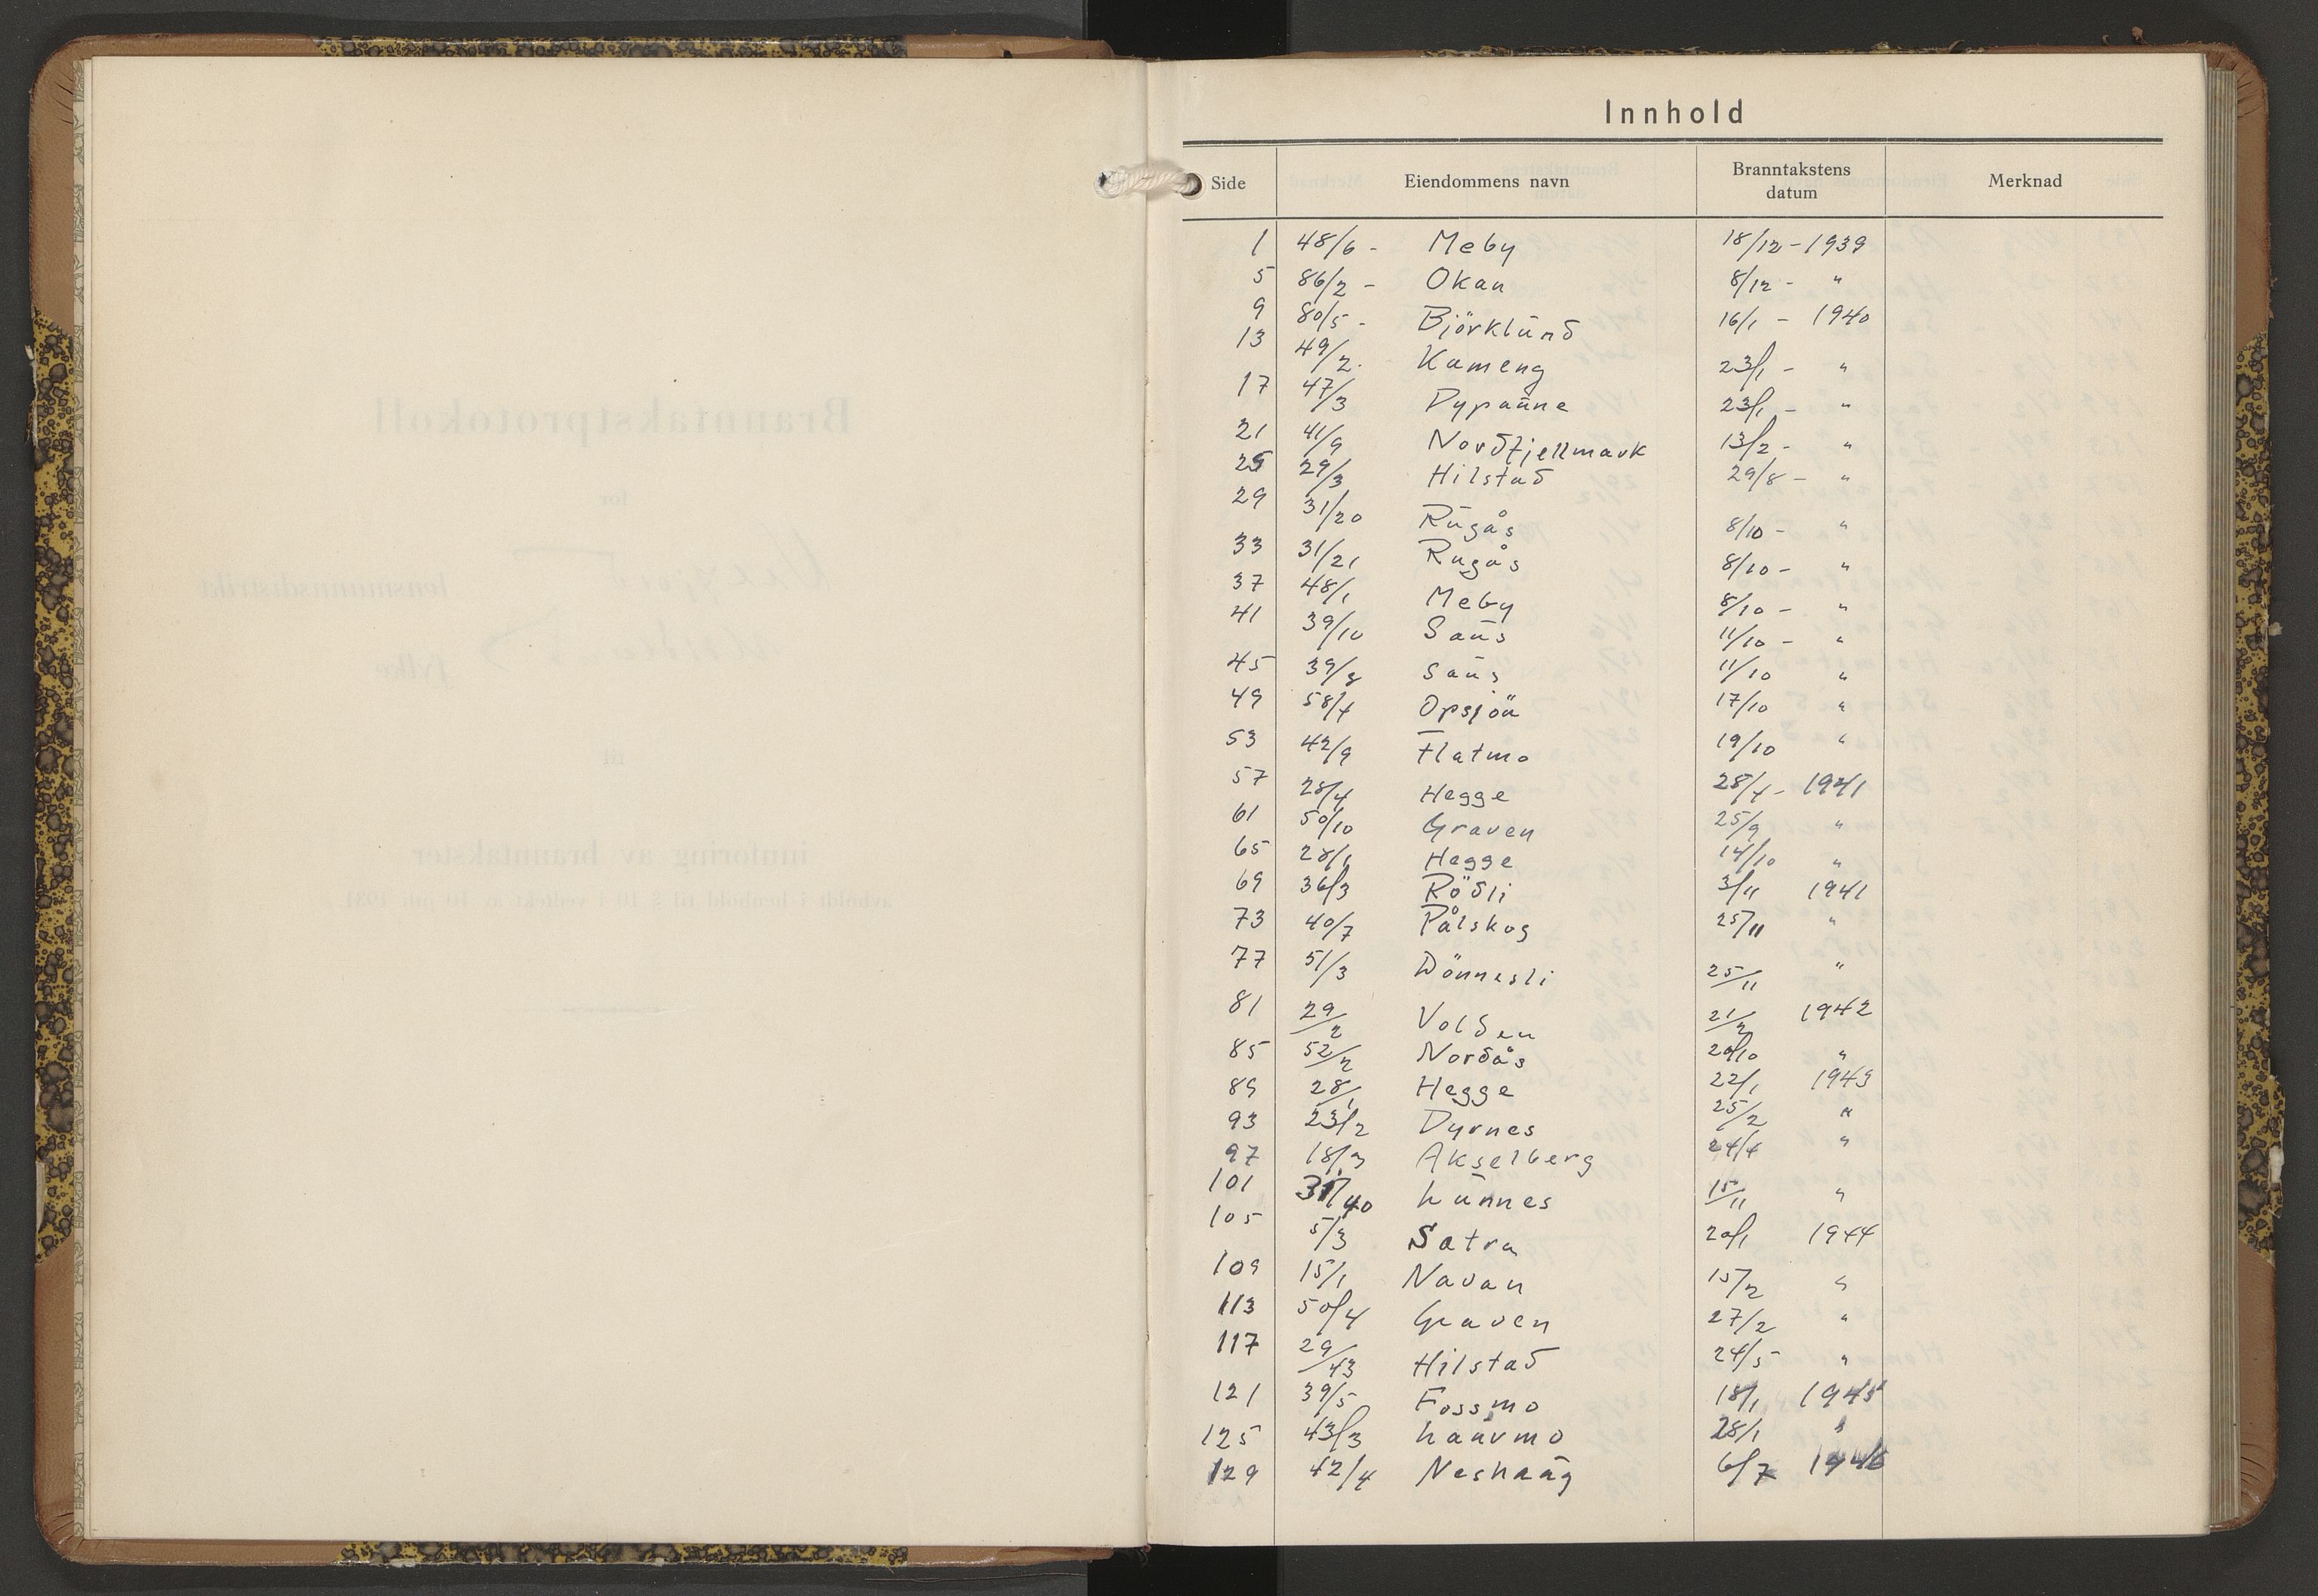 Innhold
Side Eiendommens navn Branntakstens datum Merknad
1 48/6 - Meby 18/12 - 1939
5 86/2 - Okan 8/12 - "
9 80/5 - Björklund 16/1 - 1940
13 49/2. Kameng 23/1 - "
17 47/3 Dypaune 23/1 - "
21 41/9 Nordfjellmark 13/2 - "
25 29/3 Hilstad 29/8 - "
29 31/20 Rugås 8/10 - "
33 31/21 Rugås 8/10 - "
37 48/1 Meby 8/10 - "
41 39/10 Saus 11/10 - "
45 39/8 Saus 11/10 "
49 58/4 Opsjön 17/10 "
53 42/9 Flatmo 19/10 "
57 28/4 Hegge 28/4 - 1941
61 50/10 Graven 25/9 "
65 28/1 Hegge 14/10 "
69 36/3 Rödli 3/11 1941
73 40/7 Pålskog 25/11 "
77 51/3 Dönnesli 25/11 "
81 29/2 Volden 21/2 1942
85 52/2 Nordås 20/10 "
89 28/1 Hegge 22/1 1943
93 23/2 Dyrnes 25/2 "
97 18/3 Akselberg 24/4 "
101 31/40 Lunnes 15/11 "
105 5/3 Satra 20/1 1944
109 15/1 Navan 15/2 "
113 50/4 Graven 27/2 "
117 29/43 Hilstad 24/5 "
121 39/5 Fossmo 18/1 1945
125 43/3 Laurmo 28/1 "
129 42/4 Neshaug 6/7 1946